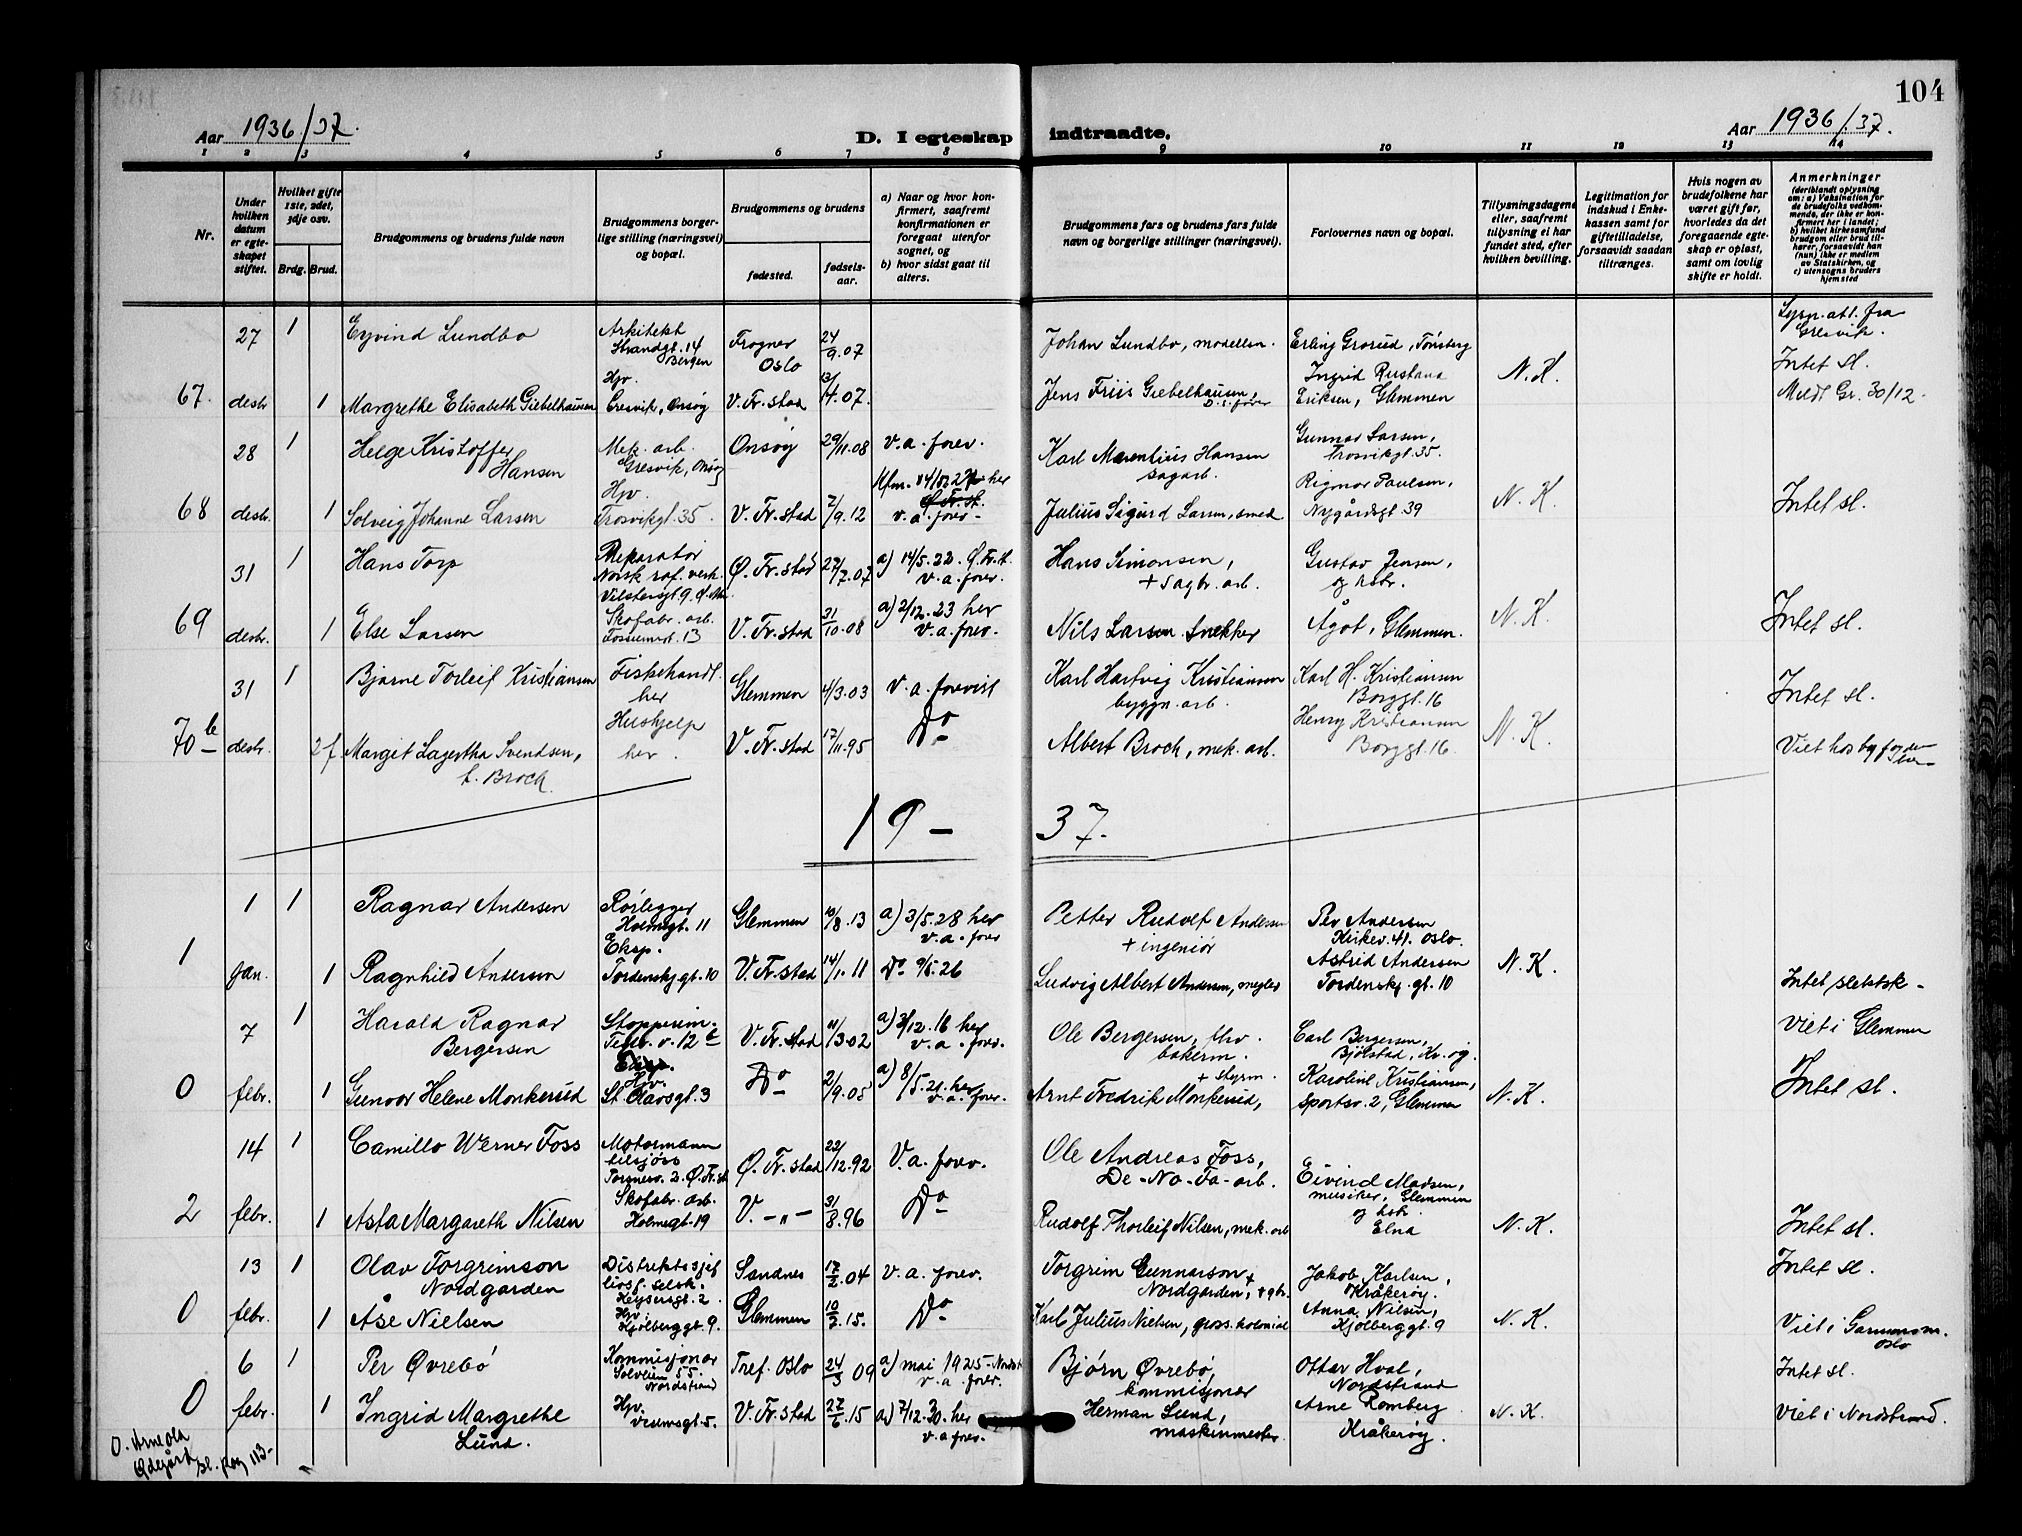 104
Aar 1936/37.
D. I egteskap indtraadte.
Aar 1936/37.
1 2 3 4 5 6 7 8 9 10 11 12 13 14
Nr.
Under hvilken datum er egteskapet stiftet.
Hvilket gifte 1ste, 2det, 3dje osv.
Brdg. Brud.
Brudgommens og brudens fulde navn
Brudgommens borgerlige stilling (næringsvei) og bopæl.
Brudgommens og brudens
fødested.
fødselsaar.
a) Naar og hvor konfirmert, saafremt konfirmationen er foregaat utenfor sognet, og
b) hvor sidst gaat til alters.
Brudgommens fars og brudens fars fulde navn og borgerlige stillinger (næringsvei).
Forlovernes navn og bopæl.
Tillysningsdagene eller, saafremt tillysning ei har fundet sted, efter hvilken bevilling.
Legitimation for indskud i Enkekassen samt for giftetilladelse, forsaavidt saadan tiltrænges.
Hvis nogen av brudefolkene har været gift før, hvorledes da det foregaaende egteskap er opløst, samt om lovlig skifte er holdt.
Anmerkninger
(deriblandt oplysning om: a) Vaksination for de brudefolks vedkommende, der ikke er konfirmert her i landet; b) hvilket kirkesamfund brudgom eller brud tilhører, forsaavidt han (hun) ikke er medlem av Statskirken, og c) utensogns bruders hjemsted
27 1 Eyvind Lundbo
Arkitekt Strandgt. 14 Bergen
Frogner Oslo 24/9.07
Johan Lundbo, modellsn.
Erling Grorud, Tønsberg
Lysn. att. fra Gresvik.
Intet sl.
67. desbr 1 Margrethe Elisabeth Giebelhausen
Hjv. Gresvik, Onsøy V. Fr. stad 13/4.07.
Jens Friis Giebelhausen,
Ingrid Rustand Eriksen, Glemmen
N. K.
Meldt Gr. 30/12.
28 1 Helge Kristoffer Hansen
Mek. arb. Gresvik, Onsøy
Onsøy 29/11.08 v. a. forev.
Karl Marentius Hansen sagarb.
Gunnar Larsen, Trosvikgt. 35.
68 desbr. 1 Solveig Johanne Larsen
Hjv. Trosvikgt. 35. V. Fr. stad 7/9.12
her v. a. forev.
Julius Sigurd Larsen, smed
Rigmor Paulsen, Nygårdsgt 39
N. K. Intet sl.
31 1 Hans Torp
Reparatør Norsk raf. verk.
Ø. Fr. stad 27/7.07 a) 14/5.22. Ø. Fr. st. v. a. forev.
Hans Simonsen, + sagbr. arb.
Gustav Jensen, og hstr.
69 desbr. 1 Else Larsen
Skofabr. arb.
V. Fr. stad 31/10.08 a) 2/12.23 her v. a. forev.
Nils Larsen Snekker
Ågot, Glemmen.
N. K. Intet sl.
31 1 Bjarne Torleif Kristiansen
Fiskehandl. her
Glemmen 4/3.03 v. a. forevist
Karl Hartvig Kristiansen byggn. arb.
Karl H. Kristiansen Borggt. 16
Intet sl.
70 b desbr. 2 f. Margit Lagertha Svendsen, f. Broch.
Hushjelp her.
V. Fr. stad 17/11.95 Do
Albert Broch, mek. arb.
Henry Kristiansen Borggt. 16.
N. K. Viet hos byfogden
19 – 37.
1 1 Ragnar Andersen
Rørlegger Holmegt. 11
Glemmen 10/8.13 a) 3/5.28 her v. a. forev
Petter Rudolf Andersen + ingeniør
Per Andersen Kirkev. 41. Oslo.
1 jan. 1 Ragnhild Andersen
Eksp. Tordenskj gt. 10 V. Fr. stad 14/1.11 Do
Ludvig Albert Andersen, megler
Astrid Andersen Tordenskj. gt. 10
N. K. Intet slektsk –
7 1 Harald Ragnar Bergersen
V. Fr. stad 11/3.02 her v. a. forev.
Ole Bergersen, bakerm.
Carl Bergersen, Bjølstad, Kr. øy.
Viet i Glemmen
0 febr. 1 Gunvor Helene Monkerud
Hjv. St. Olavsgt. 3 Do 2/9.05 a) 8/5.21. her v. a. forev.
Arnt Fredrik Monkerud, + styrm.
Karoline Kristiansen, Sportsv. 2, Glemmen
N. K. Intet sl.
14 1 Camillo Werner Foss
Motormann tilsjøss
Ø. Fr. stad 22/12.92 V. a. forev.
Ole Andreas Foss, De-No-Fa-arb.
Eivind Madsen, musiker, Glemmen
2 febr. 1 Asta Margareth Nilsen
Skofabr. arb. Holmegt. 19
V. – „ – 31/8.96 Do
Rudolf Thorleif Nilsen, mek. arb
og hstr. Elna
N. K. Intet sl.
13 1 Olav Torgrimson Nordgarden
Distriktssjef livsf. selsk. Keysersgt. 2
Sandnes 17/2.04 v. a. forev.
Torgrim Gunnarson Nordgarden, + gbr.
Jakob Karlsen, Kråkerøy.
Intet sl.
0 febr. 1 Åse Nielsen
Hjv. Kjølberggt. 9.
Glemmen 10/2.15. Do
Karl Julius Nielsen, gross. kolonial
Anna Nilsen, Kjølberggt. 9
N. K. Viet i Oslo
6 1 Per Øvrebø
Kommisjonær Solveien 55. Nordstrand
Tref. Oslo 24/3 09 a) mai 1925 – Nordst v. a. forev.
Bjørn Øvrebø, kommisjonær
Ottar Hval, Nordstrand
Intet sl.
0 febr. 1 Ingrid Margrethe Lund.
Hjv. V. Fr. stad 27/6.15 a) 7/12.30. her v. a. forev.
Herman Lund, maskinmester.
Arne Romberg Kråkerøy.
N. K. Viet i Nordstrand.
O. Arne Ola Ødegård sl. pag 113–